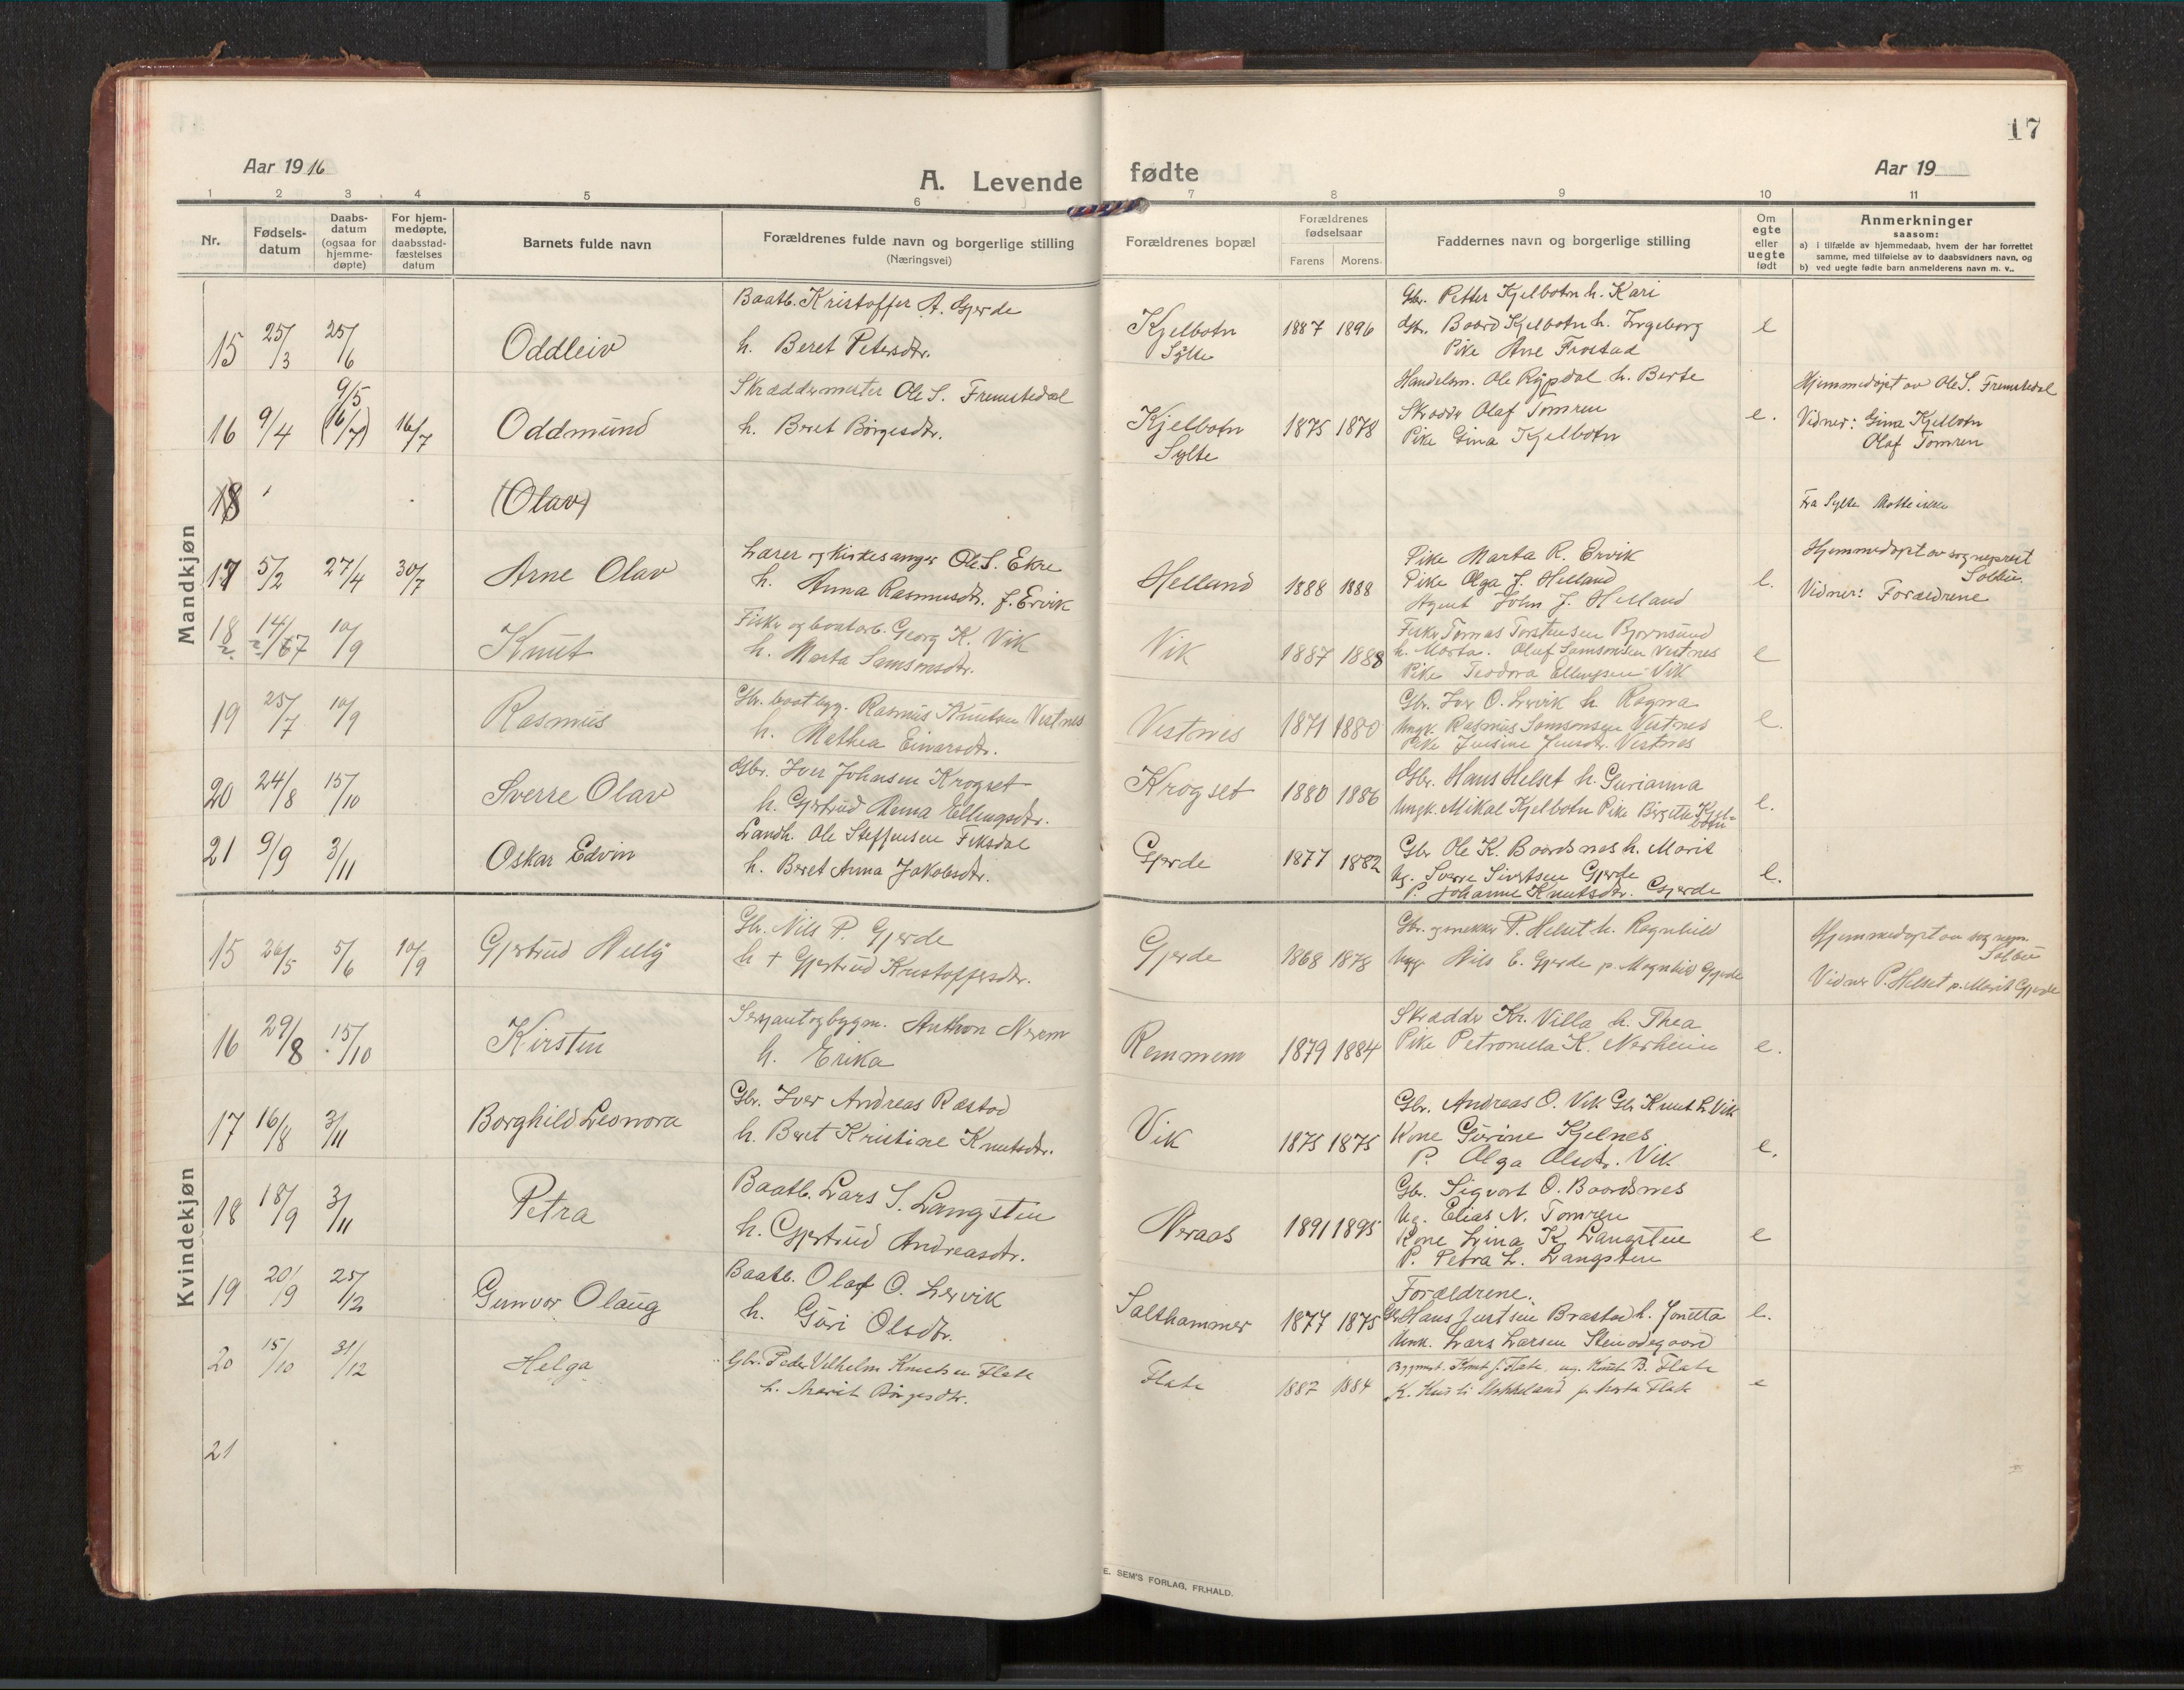 17
Aar 1916
A. Levende fødte
Aar 19
1 2 3 4 5 6 7 8 9 10 11
Nr.
Fødsels-
datum
Daabs-
datum
(ogsaa for
hjemme-
døpte)
For hjem-
medøpte,
daabsstad-
fæstelses
datum
Barnets fulde navn
Forældrenes fulde navn og borgerlige stilling
(Næringsvei)
Forældrenes bopæl
Forældrenes
fødselsaar
Farens Morens
Faddernes navn og borgerlige stilling
Om
egte
eller
uegte
født
Anmerkninger
saasom:
a) i tilfælde av hjemmedaab, hvem der har forrettet
samme, med tilføielse av to daabsvidners navn, og
b) ved uegte fødte barn anmelderens navn m. v..
Mandkjøn
15 25/3 25/6 Oddleiv
Baatb. Kristoffer A. Gjerde
h. Beret Petersdtr.
Kjelbotn
Sylte
1887 1896
Gbr. Petter Kjelbotn h. Kari
Gbr. Baard Kjelbotn h. Ingeborg
Pike Ane Frostad
e
16 9/4 9/5
(16/7) 16/7 Oddmund
Skræddermester Ole S. Fremstedal
h. Beret Børgesdtr.
Kjelbotn
Sylte
1875 1878
Handelsm. Ole Rypdal h. Berte
Skrædder Olaf Tomren
Pike Gina Kjelbotn
e.
Hjemmedøpt av Ole S. Fremstedal
Vidner: Gina Kjelbotn
Olaf Tomren
18 (Olav)
Fra Sylte
17 5/2 27/4 30/7 Arne Olav
Lærer og kirkesanger Ole S. Ekre
h. Anna Rasmusdtr. f. Ervik
Helland
1888 1888
Pike Marta R. Ervik
Pike Olga J. Helland
Agent John J. Helland
e.
Hjemmedøpt av sogneprest
Solbu
Vidner: Forældrene
18 14/7 10/9 Knut
Fisker og baatarb. Georg K. Vik
h. Marta Samsonsdtr.
Vik
1887 1888
Fisker Tomas Torstensen Bjørnsund
h. Marta. Oluf Samsonsen Vestnes
Pike Teodora Ellingsen Vik
e
19 25/7 10/9 Rasmus
Gbr. baatbyg. Rasmus Knutsen Vestnes
h. Mathea Einarsdtr.
Vestnes
1871 1880
Gbr. Iver O. Lervik h Ragna
Ungk. Rasmus Samsonsen Vestnes
Pike Jensine Jensdtr. Vestnes
e.
20 24/8 15/10 Sverre Olav
Gbr. Iver Johansen Krogset
h. Gjertrud Anna Ellingsdtr.
Krogset
1880 1886
Gbr. Hans Helset h. Gurianna
Ungk. Mikal Kjelbotn Pike Birgithe Kjel-
botn
e.
21 9/9 3/11 Oskar Edvin
Landh. Ole Steffensen Fiksdal
h. Beret Anna Jakobsdtr.
Gjerde
1877 1882
Gbr Ole K. Baardsnes h. Marit
Ug. Sverre Sivertsen Gjerde
P. Johanne Knutsdtr. Gjerde
e.
Kvindekjøn
15 26/5 5/6 10/9 Gjertrud Nelly
Gbr. Nils P. Gjerde
h + Gjertrud Kristoffersdtr.
Gjerde
1868 1878
Gbr. og snekker P. Helset h. Ragnhild
Ungk Nils E. Gjerde p. Magnhild Gjerde
Hjemmedøpt av sognepr.
Solbu
Vidner P. Helset p. Marit Gjerde
16 29/8 15/10 Kirsten
Sersjant og bygm. Anthon Nerem
h. Erika
Remmem
1879 1884
Skrædder Kr. Villa h. Thea
Pike Petronella K. Nerheim
e.
17 16/8 3/11 Borghild Leonora
Gbr. Iver Andreas Rästad
h. Beret Kristine Knutsdtr.
Vik
1875 1875
Gbr. Andreas O. Vik Gbr Knut L. Vik
Kone Gurine Kjelnes
P. Olga Olsdtr. Vik
e.
18 18/9 3/11 Petra
Baatb. Lars S. Langsten
h. Gjertrud Andreasdtr.
Neraas
1891 1895
Gbr. Sigvart O. Baardsnes
Ug. Elias N. Tomren
Kone Lina K Langsten
P. Petra L. Langsten
e
19 20/9 25/12 Gunvor Olaug
Baatb. Olaf O. Lervik
h. Guri Olsdtr.
Salthammer
1877 1875
Forældrene.
Gbr Hans Justsen Brastad h. Jonetta
Unk. Lars Larsen Stenødegaard
e.
20 15/10 31/12 Helga
Gbr. Peder Vilhelm Knutsen Flate
h. Marit Børgesdtr.
Flate
1887 1884
Bygmest. Knut J. Flate, ug. Knut B. Flate
K. Kirsti Stokkeland p. Marta Flate
e
21
E. SEM'S FORLAG, FR.HALD.